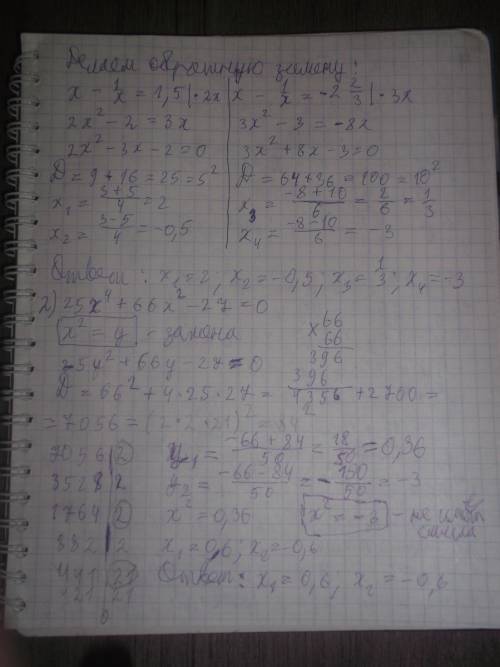 Делаем обратную замену:
x - 1/x = 1,5 | ·2x
2x² - 2 = 3x
2x² - 3x - 2 = 0
D = 9 + 16 = 25 = 5²
x₁ = (3+5)/4 = 2
x₂ = (3-5)/4 = -0,5
x - 1/x = -2 2/3 | ·3x
3x² - 3 = -8x
3x² + 8x - 3 = 0
D = 64 + 36 = 100 = 10²
x₃ = (-8+10)/6 = 2/6 = 1/3
x₄ = (-8-10)/6 = -3
Ответ: x₁ = 2; x₂ = -0,5; x₃ = 1/3; x₄ = -3
2) 25x⁴ + 66x² - 27 = 0
x² = y - замена
25y² + 66y - 27 = 0
×66
66
396
396
D = 66² + 4·25·27 = 4356 + 2700 =
= 7056 = (2·2·21)² = 84²
7056 | 2
3528 | 2
1764 | 2
882 | 2
441 | 21
21 | 21
y₁ = (-66+84)/50 = 18/50 = 0,36
y₂ = (-66-84)/50 = -150/50 = -3
x² = 0,36
x² = -3 - не имеет
смысла
x₁ = 0,6; x₂ = -0,6
Ответ: x₁ = 0,6; x₂ = -0,6